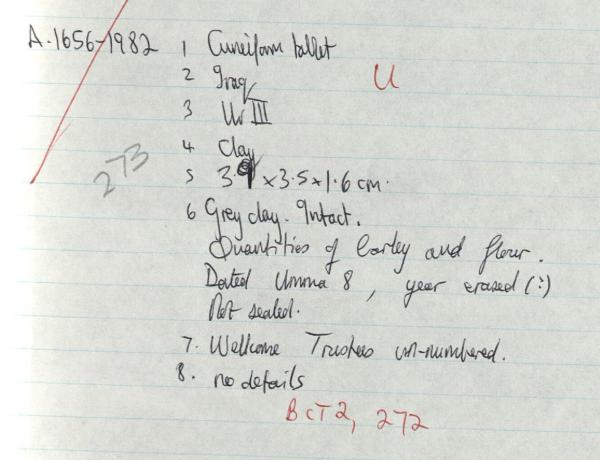 A.1656-1982 1 Cuneiform tablet
2 Iraq
U
3 Ur III
4 Clay
273
5 3.9 x 3.5 x 1.6 cm.
6 Grey clay. Intact.
Quantities of barley and flour.
Dated Umma 8, year erased (?)
Not sealed.
7. Wellcome Trustees un-numbered.
8. no details
BCT2, 272